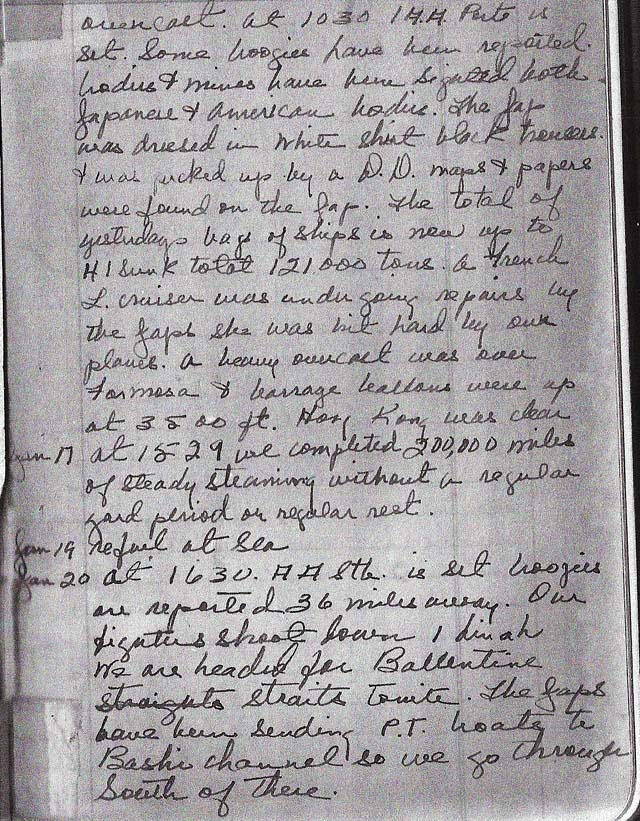 overcast. at 1030 A.A. Parts is
set. Some boogies have been reported.
bodies & mines have been sighted both
Japanese & American bodies. The Jap
was dressed in white shirt black trousers.
& was picked up by a D.D. maps & papers
were found on the Jap. The total of
yesterdays bag of ships is now up to
41 sunk total 121000 tons. a French
L. cruiser was under going repairs by
the Japs she was hit hard by our
planes. a heavy overcast was over
Formosa & barrage balloons were up
at 3500 ft. Hong Kong was clear
Jan 17 at 1529 we completed 200,000 miles
of steady steaming without a regular
yard period or regular rest.
Jan 19 refuel at sea
Jan 20 at 1630. A A Sth. is set boogies
are reported 36 miles away. Our
fighters shoot down 1 dinah
We are headed for Ballentine
straights straits tonite. The Japs
have been sending P.T. boats to
Bashi channel so we go through
South of there.